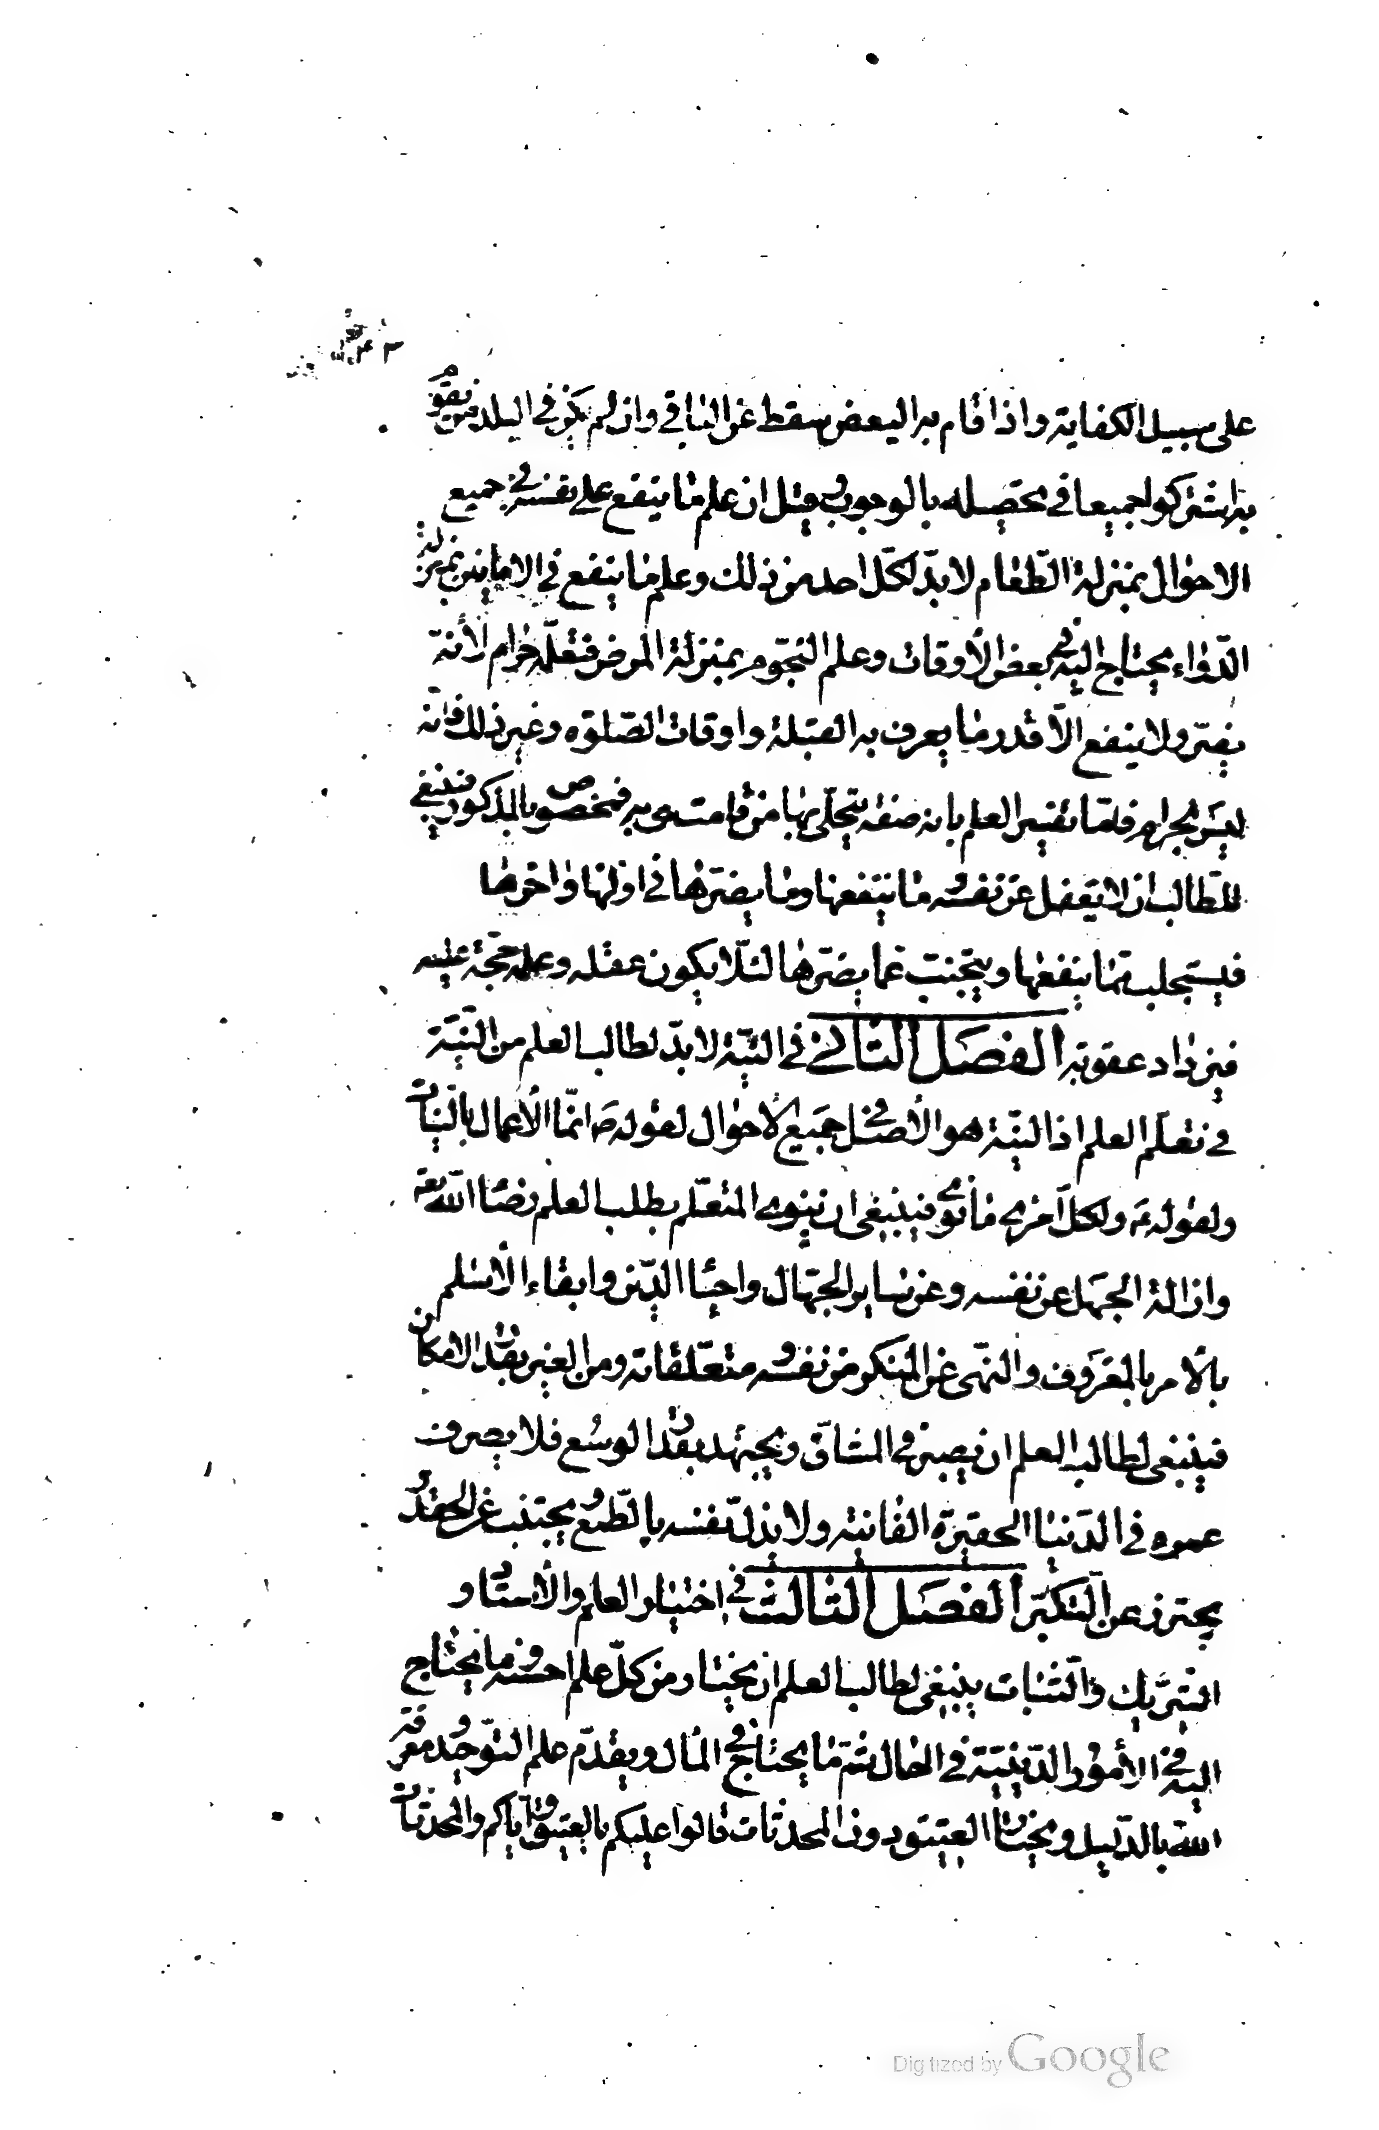 على سبيل الكفاية واذا قام به البعض سقط عن الباقي وان لم يكن في البلد من يقوم
به اشتركوا جميعا في تحصيله بالوجوب وقيل ان علم ما ينفع على نفسه في جميع
الاحوال بمنزلة الطعام لا بدّ لكلّ احد من ذلك وعلم ما ينفع في الاحايين بمنزلة
الدّواء يحتاج اليه في بعض الأوقات وعلم النجوم بمنزلة المرض فتعلّمه حرام لأنه
يضرّ ولا ينفع الّا قدر ما يعرف به القبلة واوقات الصّلوة وغير ذلك فانه
ليس بحرام فامّا تفسير العلم بانه صفة يتجلّى بها من قامت هى به فمخصوص بالمذكور فينبغي
للطّالب ان لا يغفل عن نفسه وما ينفعها وما يضرّها في اولها واخرها
فيستجلب بما ينفعها ويتجنب عما يضرّها لئلّا يكون عقله وعلمه حجّة عليه
فيزداد عقوبة الفصل الثاني في النيّة لا بدّ لطالب العلم من النّيّة
في تعلّم العلم اذ النيّة هو الأصل في جميع الأحوال لقوله ص انمّا الأعمال بالنّيّات
ولقوله ع ولكلّ امرئ ما نوى فينبغي ان ينوي المتعلّم بطلب العلم رضا اللّه تع
وازالة الجهل عن نفسه وعن ساير الجهّال واحيا الدّين وابقاء الأسلم
بالأمر بالمعروف والنّهى عن المنكر من نفسه ومتعلّقاته ومن الغير بقدر الامكان
فينبغي لطالب العلم ان يصبر في المشاقّ ويجتهد بقدر الوسع فلا يصرف
عمره في الدّنيا الحقيرة الفانية ولا يذلّ نفسه بالطّمع ويجتنب عن الحقد و
يحترز عن التكبّر الفصل الثالث في اختيار العلم والأستاد و
الشريك والثبات ينبغي لطالب العلم ان يختار من كلّ علم احسنه وما يحتاج
اليه في الأمور الدّينيّة في الحال ثمّ ما يحتاج في المأل ويقدّم علم التوحيد ومعرفة
اللّه بالدّليل ويختار العتيق دون المحدثات قالوا عليكم بالعتيق وايّاكم والمحدثات
Digitized by Google